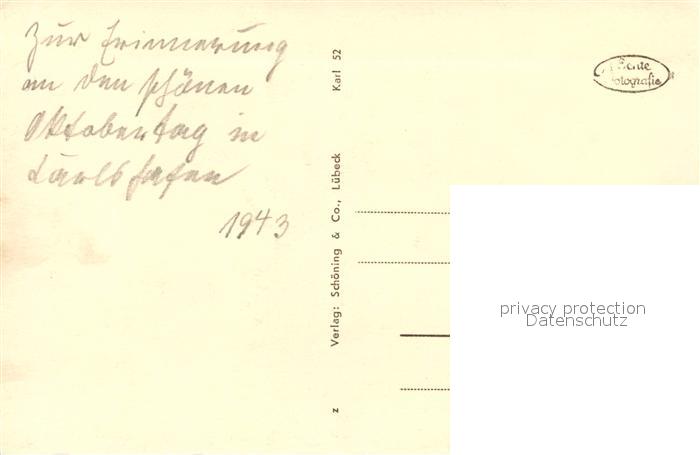 Zur Erinnerung
an den schönen
Oktobertag in
Karlshafen
1943
Verlag: Schöning & Co., Lübeck
Karl 52
z
Echte
Fotografie
privacy protection
Datenschutz